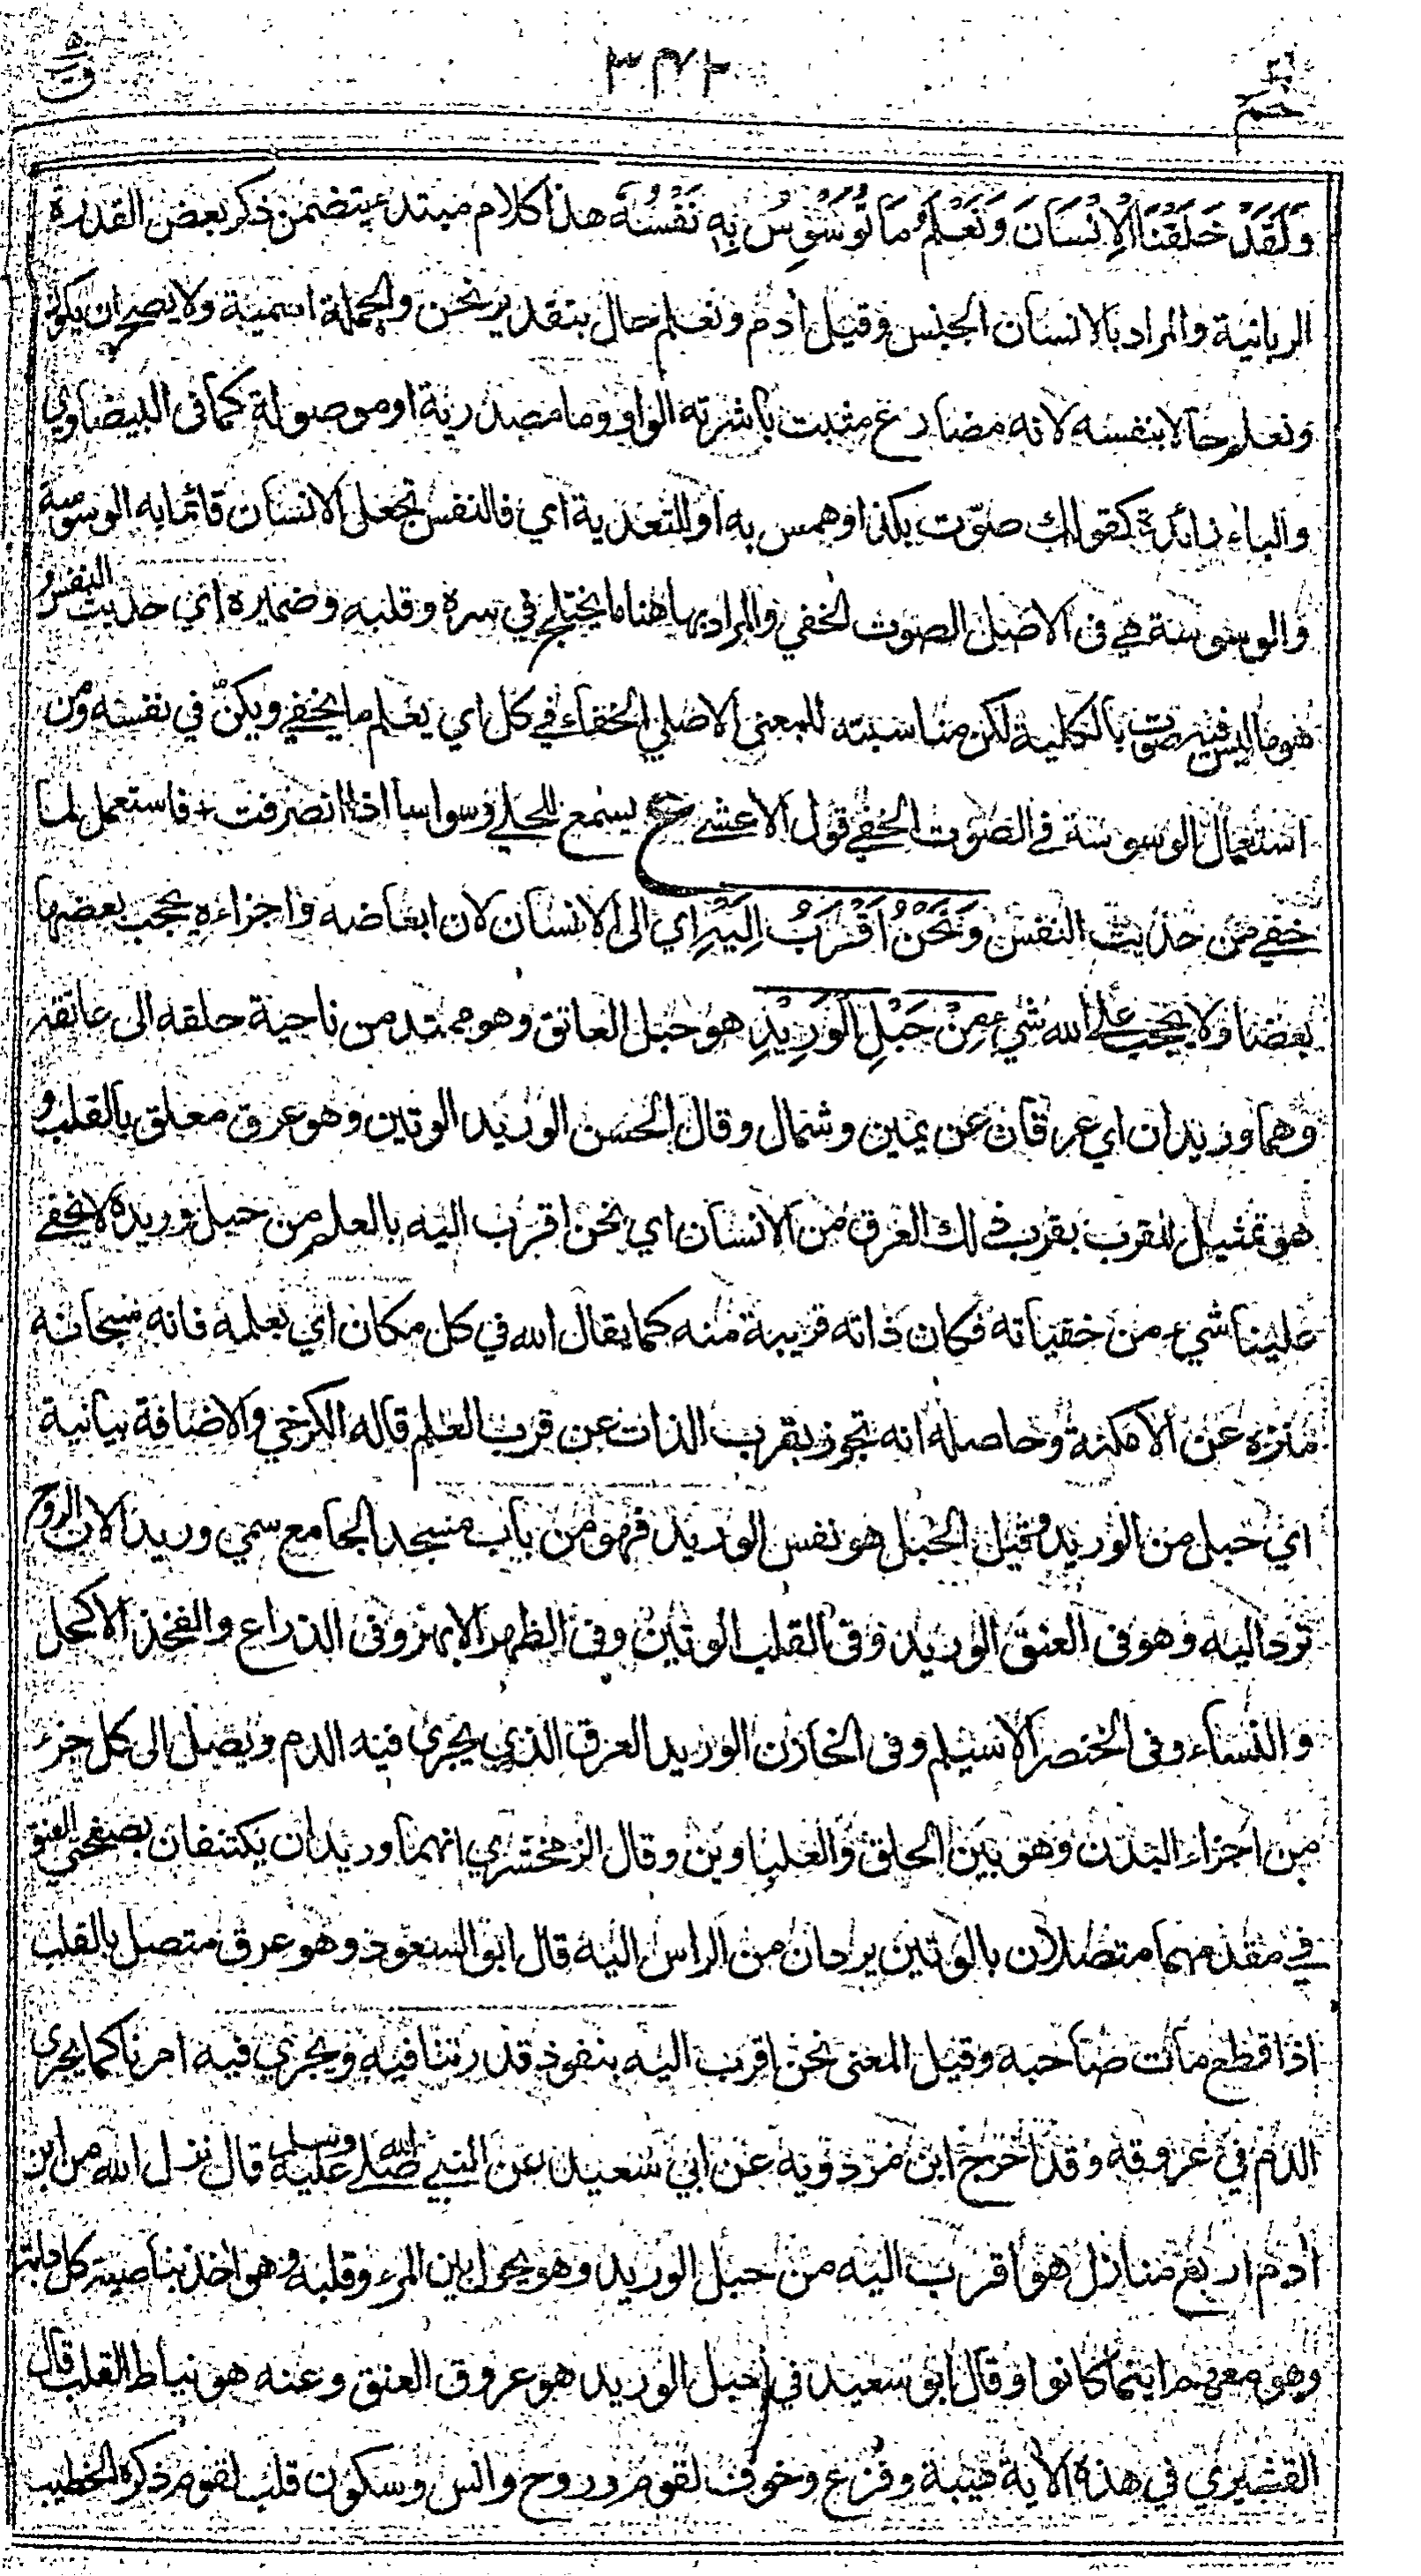 حٰم ٢٦ ٣٧٢ ق ٥٠
وَلَقَدْ خَلَقْنَا الْاِنْسَانَ وَنَعْلَمُ مَا تُوَسْوِسُ بِهٖ نَفْسُهٗ هذا كلام مبتدء يتضمن ذكر بعض القدرة
الربانية والمراد بالانسان الجنس وقيل أدم ونعلم حال بتقدير نحن والجملة اسمية ولا يصح ان يكون
ونعلم حالا بنفسه لانه مضارع مثبت باشرته الواو وما مصدرية او موصولة كما فى البيضاوي
والباء زائدة كقولك صوّت بكذا وهمس به او للتعدية اي فالنفس تجعل الانسان قائما به الوسوسة
والوسوسة هي فى الاصل الصوت الخفي والمراد بها هنا ما يختلج في سره وقلبه وضميره اي حديث النفس و
هو ما ليس فيه صوت بالكلية لكن مناسبته للمعنى الاصلي الخفاء في كل اي يعلم ما يخفي ويكنّ في نفسه ومن
استعمال الوسوسة في الصوت الخفي قول الاعشى ع يسمع للحلي وسواسا اذا انصرفت + فاستعمل لما
خفي من حديث النفس وَنَحْنُ اَقْرَبُ اِلَيْهِ اي الى الانسان لان ابعاضه واجزاءه يحجب بعضها
بعضا ولا يحجب علم الله شيء مِنْ حَبْلِ الْوَرِيْدِ هو حبل العاتق وهو ممتد من ناحية حلقه الى عاتقه
وهما وريدان اي عرقان عن يمين وشمال وقال الحسن الوريد الوتين وهو عرق معلق بالقلب و
هو تمثيل للقرب بقرب ذلك العرق من الانسان اي نحن اقرب اليه بالعلم من حبل وريده لا يخفى
علينا شيء من خفياته فكان ذاته قريبة منه كما يقال الله في كل مكان اي بعلمه فانه سبحانه
منزه عن الامكنة وحاصله انه تجوز بقرب الذات عن قرب العلم قاله الكرخي والاضافة بيانية
اي حبل من الوريد وقيل الحبل هو نفس الوريد فهو من باب مسجد الجامع سمي وريدا لان الروح
ترد اليه وهو فى العنق الوريد وفى القلب الوتين وفى الظهر الابهر وفى الذراع والفخذ الاكحل
والنساء وفى الخنصر الاسيلم وفى الخازن الوريد العرق الذي يجري فيه الدم ويصل الى كل جزء
من اجزاء البدن وهو بين الحلق والعلباوين وقال الزمخشري انهما وريدان يكتنفان بصفحتي العنق
في مقدمهما متصلان بالوتين يردان من الراس اليه قال ابو السعود وهو عرق متصل بالقلب
اذا قطع مات صاحبه وقيل المعنى نحن اقرب اليه بنفوذ قدرتنا فيه ويجري فيه امرنا كما يجري
الدم في عروقه وقد اخرج ابن مردويه عن ابي سعيد عن النبي صلى الله عليه وسلم قال نزل الله من ابن
أدم اربع منازل هو اقرب اليه من حبل الوريد وهو يحول بين المرء وقلبه وهو اخذ بناصية كل دابة
وهو معهم اينما كانوا وقال ابو سعيد في حبل الوريد هو عروق العنق وعنه هو نياط القلب قال
القشيري في هذه الأية هيبة وفزع وخوف لقوم وروح وانس وسكون قلب لقوم ذكره الخطيب